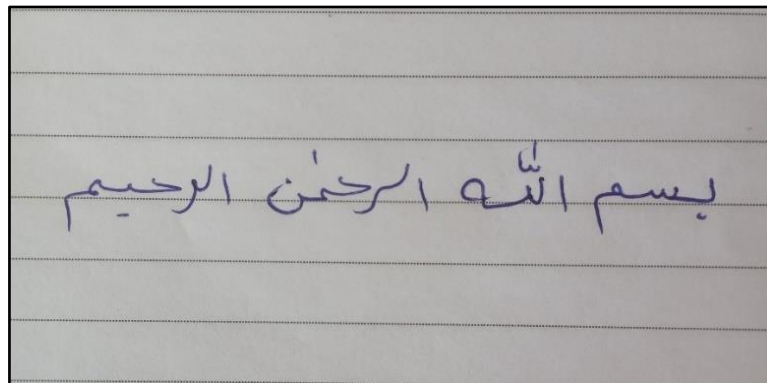 بسم اللّٰه الرحمٰن الرحيم